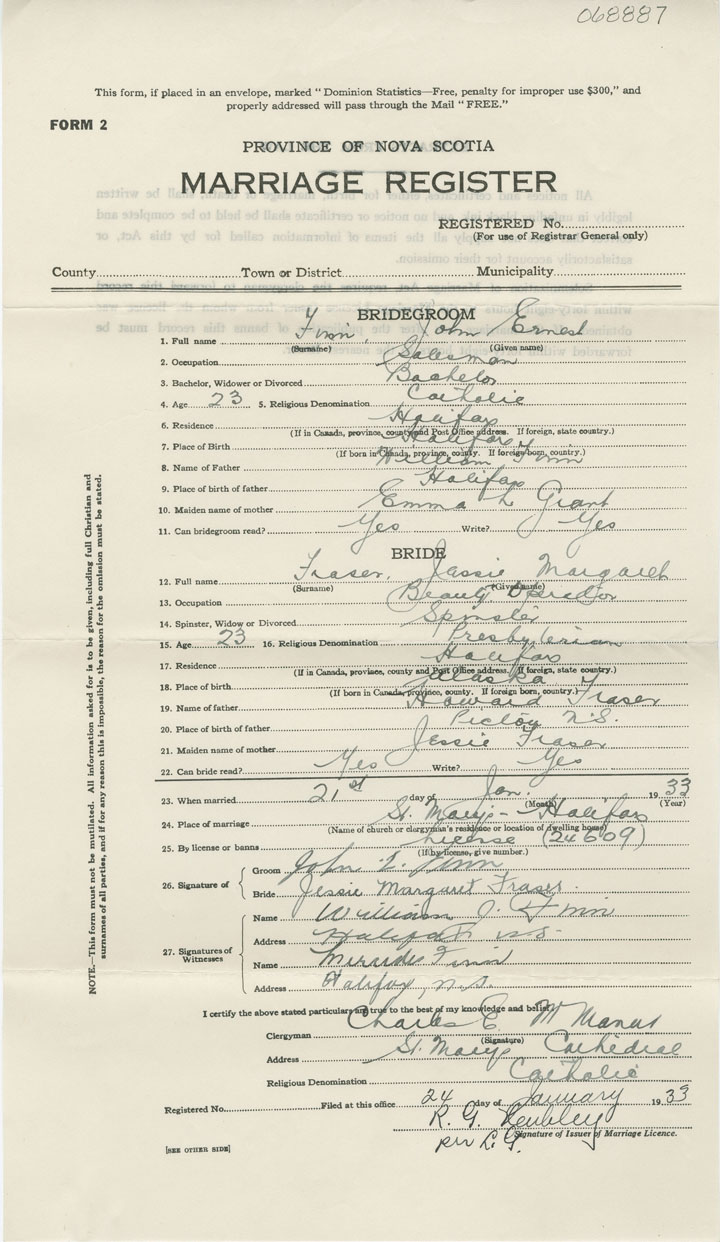 068887
This form, if placed in an envelope, marked "Dominion Statistics—Free, penalty for improper use $300," and
properly addressed will pass through the Mail "FREE."
FORM 2
PROVINCE OF NOVA SCOTIA
MARRIAGE REGISTER
REGISTERED No.
(For use of Registrar General only)
County Town or District Municipality
BRIDEGROOM
1. Full name Finn, John Ernest
(Surname) (Given name)
2. Occupation Salesman
3. Bachelor, Widower or Divorced Bachelor
4. Age 23 5. Religious Denomination Catholic
6. Residence Halifax
(If in Canada, province, county and Post Office address. If foreign, state country.)
7. Place of Birth Halifax
(If born in Canada, province, county. If foreign born, country.)
8. Name of Father William Finn
9. Place of birth of father Halifax
10. Maiden name of mother Emma L Grant
11. Can bridegroom read? Yes Write? Yes
BRIDE
12. Full name Fraser, Jessie Margaret
(Surname) (Given name)
13. Occupation Beauty Operator
14. Spinster, Widow or Divorced Spinster
15. Age 23 16. Religious Denomination Presbyterian
17. Residence Halifax
(If in Canada, province, county and Post Office address. If foreign, state country.)
18. Place of birth Alaska
(If born in Canada, province, county. If foreign born, country.)
19. Name of father Howard Fraser
20. Place of birth of father Pictou N.S.
21. Maiden name of mother Jessie Fraser
22. Can bride read? Yes Write? Yes
23. When married 21st day of Jan. 1933
(Month) (Year)
24. Place of marriage St. Mary's - Halifax
(Name of church or clergyman's residence or location of dwelling house)
25. By license or banns License (24609)
(If by license, give number.)
26. Signature of
Groom John E. Finn
Bride Jessie Margaret Fraser.
27. Signatures of Witnesses
Name William J. Finn
Address Halifax N.S.
Name Finn
Address Halifax, N.S.
I certify the above stated particulars are true to the best of my knowledge and belief.
Clergyman Charles E McManus
(Signature)
Address St. Mary's Cathedral
Religious Denomination Catholic
Registered No. Filed at this office 24 day of January 1933
R. G.
Signature of Issuer of Marriage Licence.
per L. G.
[SEE OTHER SIDE]
NOTE.—This form must not be mutilated. All information asked for is to be given, including full Christian and
surnames of all parties, and if for any reason this is impossible, the reason for the omission must be stated.